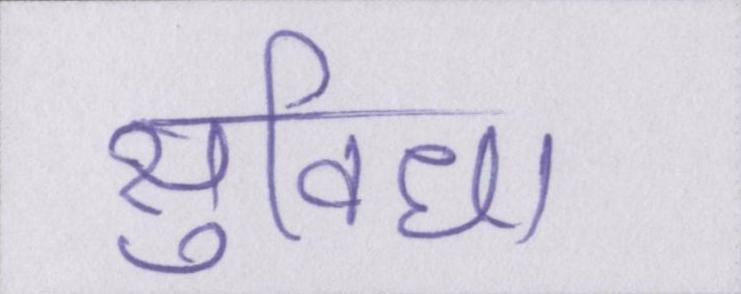 सुविधा